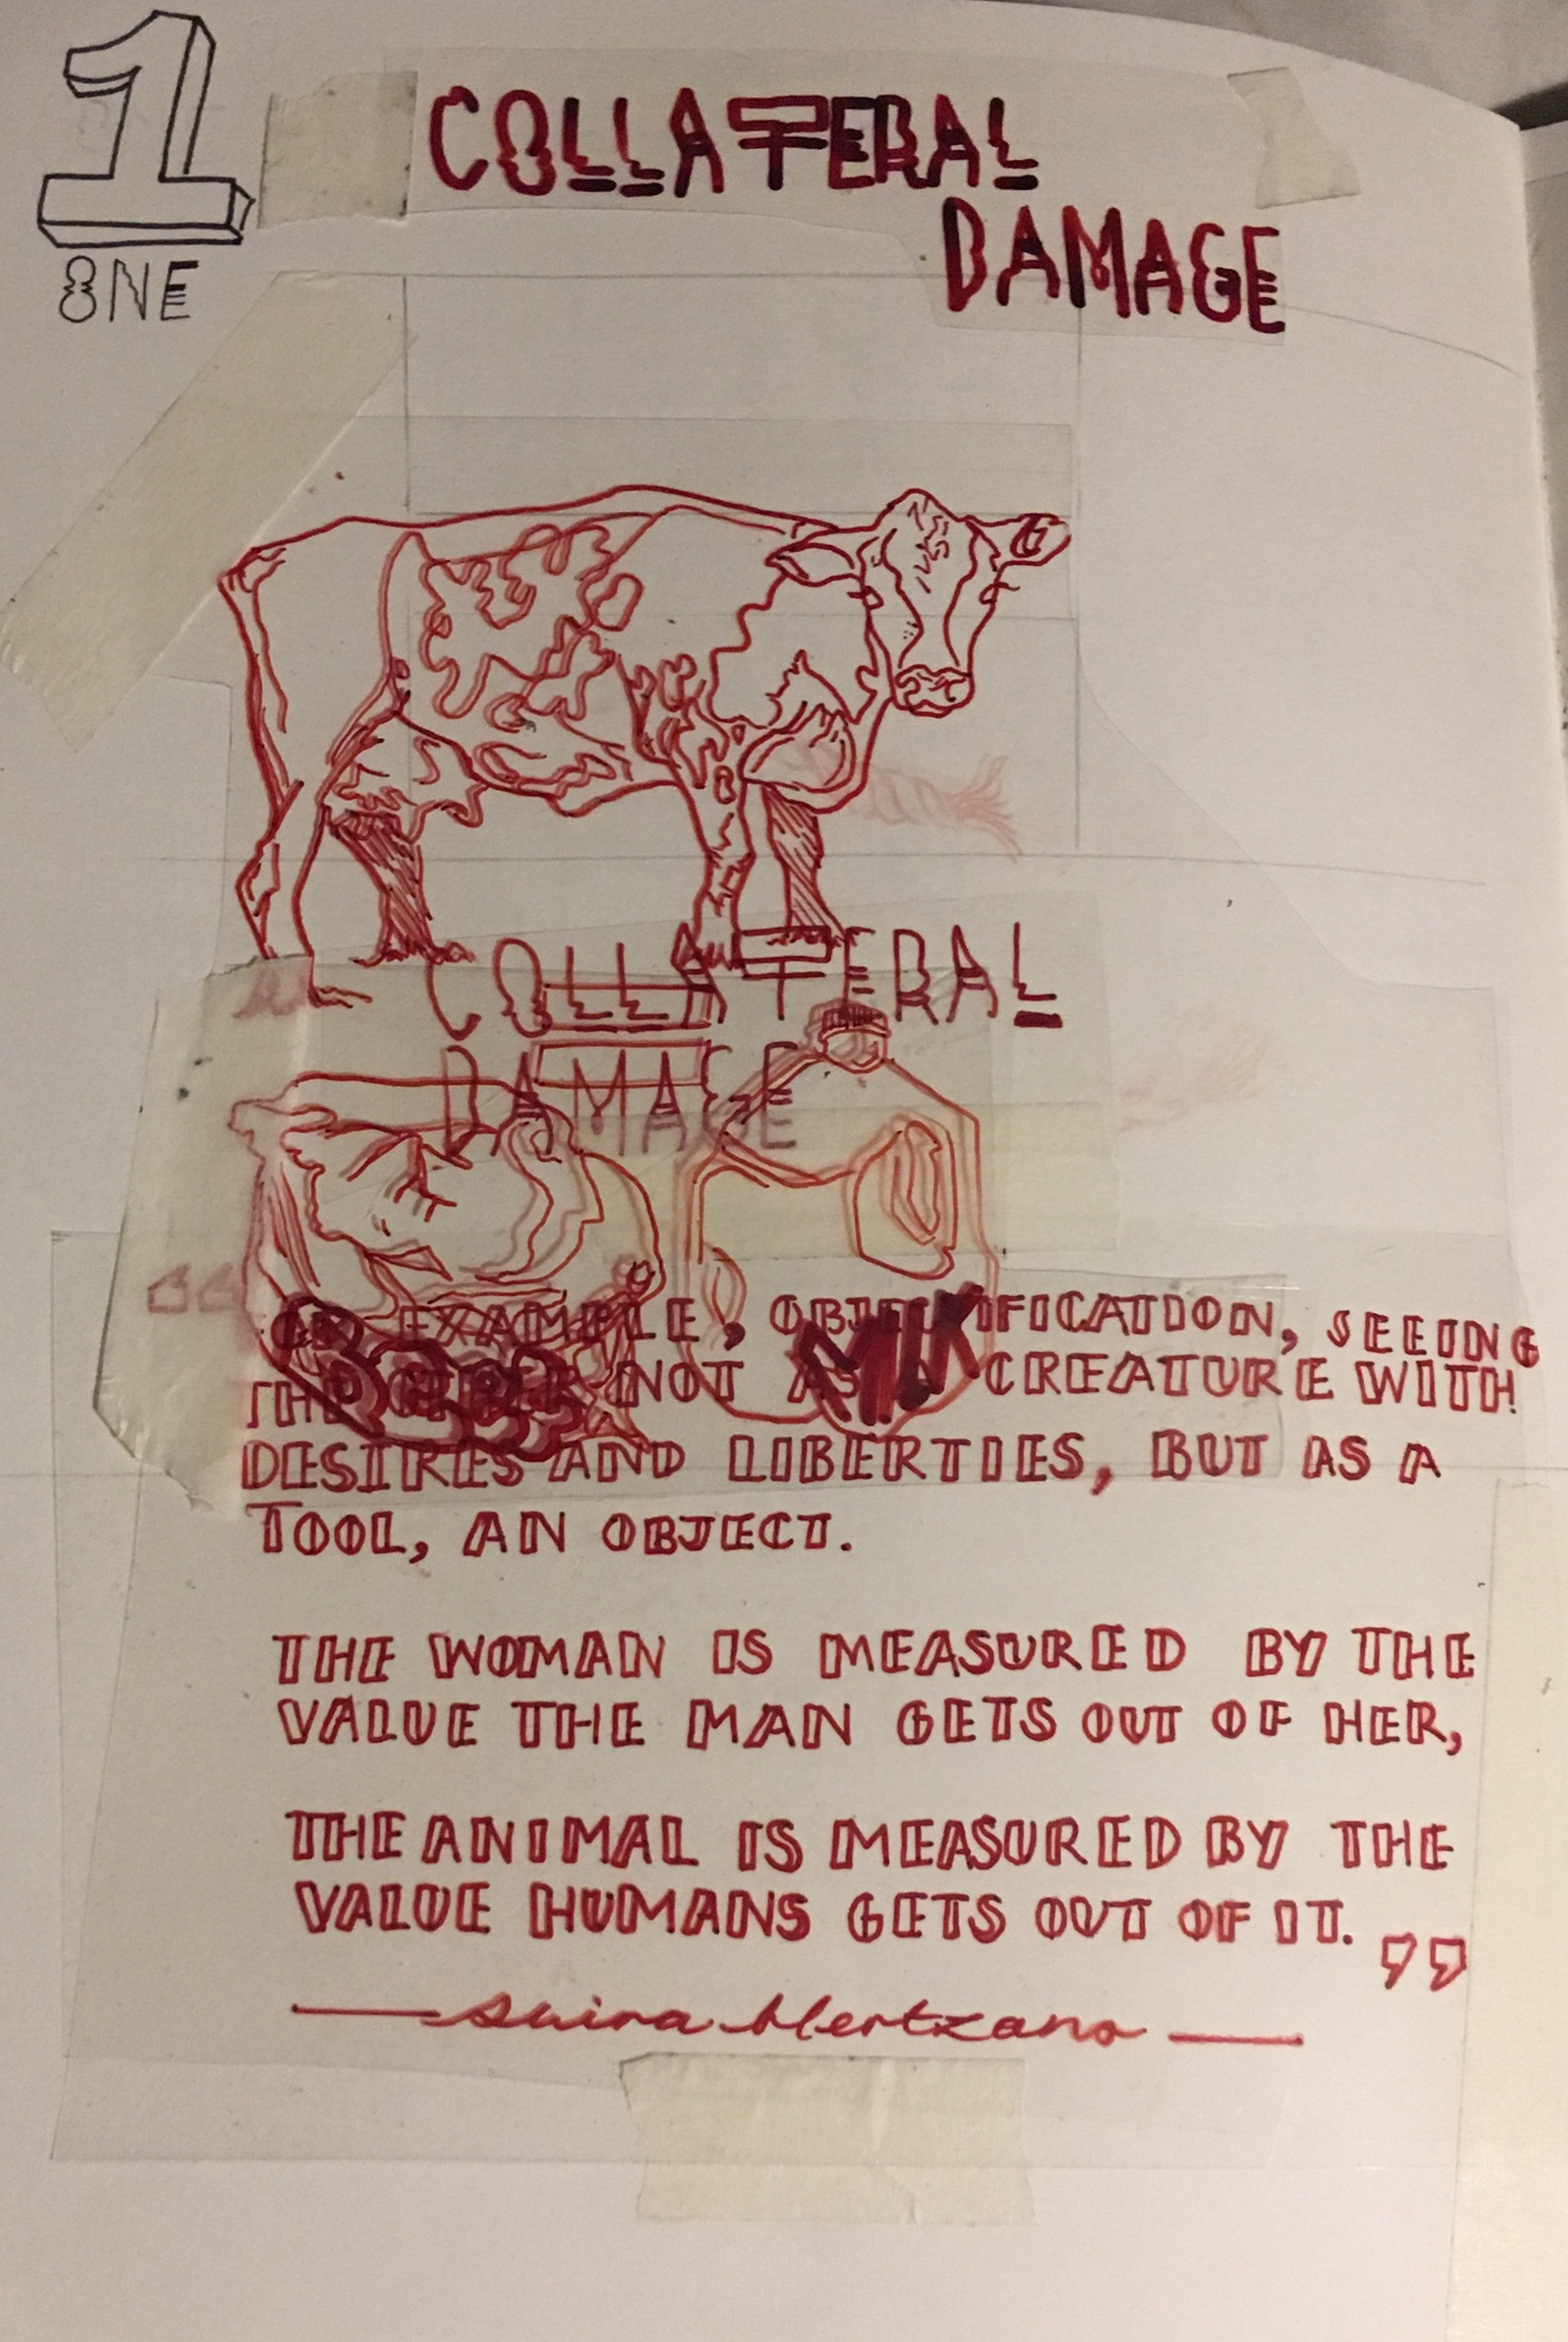 1
ONE
COLLATERAL
DAMAGE
COLLATERAL
DAMAGE
MILK
“ EXAMPLE, OBJECTIFICATION, SEEING
THE OTHER NOT AS A CREATURE WITH
DESIRES AND LIBERTIES, BUT AS A
TOOL, AN OBJECT.
THE WOMAN IS MEASURED BY THE
VALUE THE MAN GETS OUT OF HER,
THE ANIMAL IS MEASURED BY THE
VALUE HUMANS GETS OUT OF IT. ”